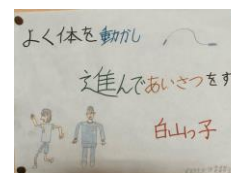 よく体を動かし
進んであいさつをす
白山っ子